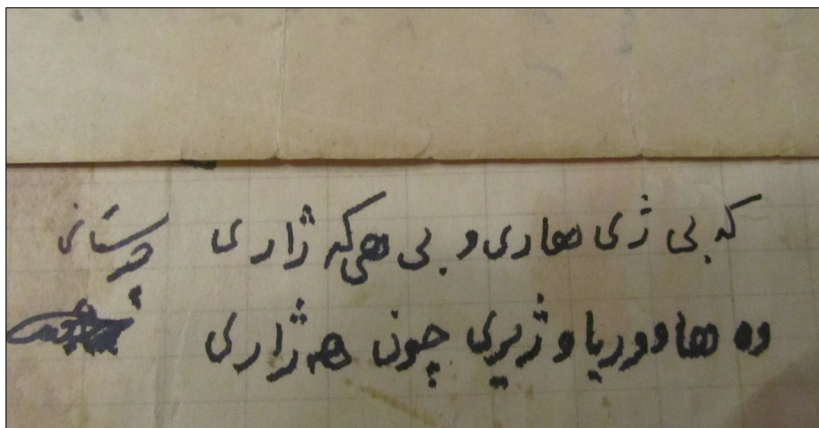 که بی ژی هاری و بی هی که ژاری
وه هاوریا و ژیری چون هه ژاری